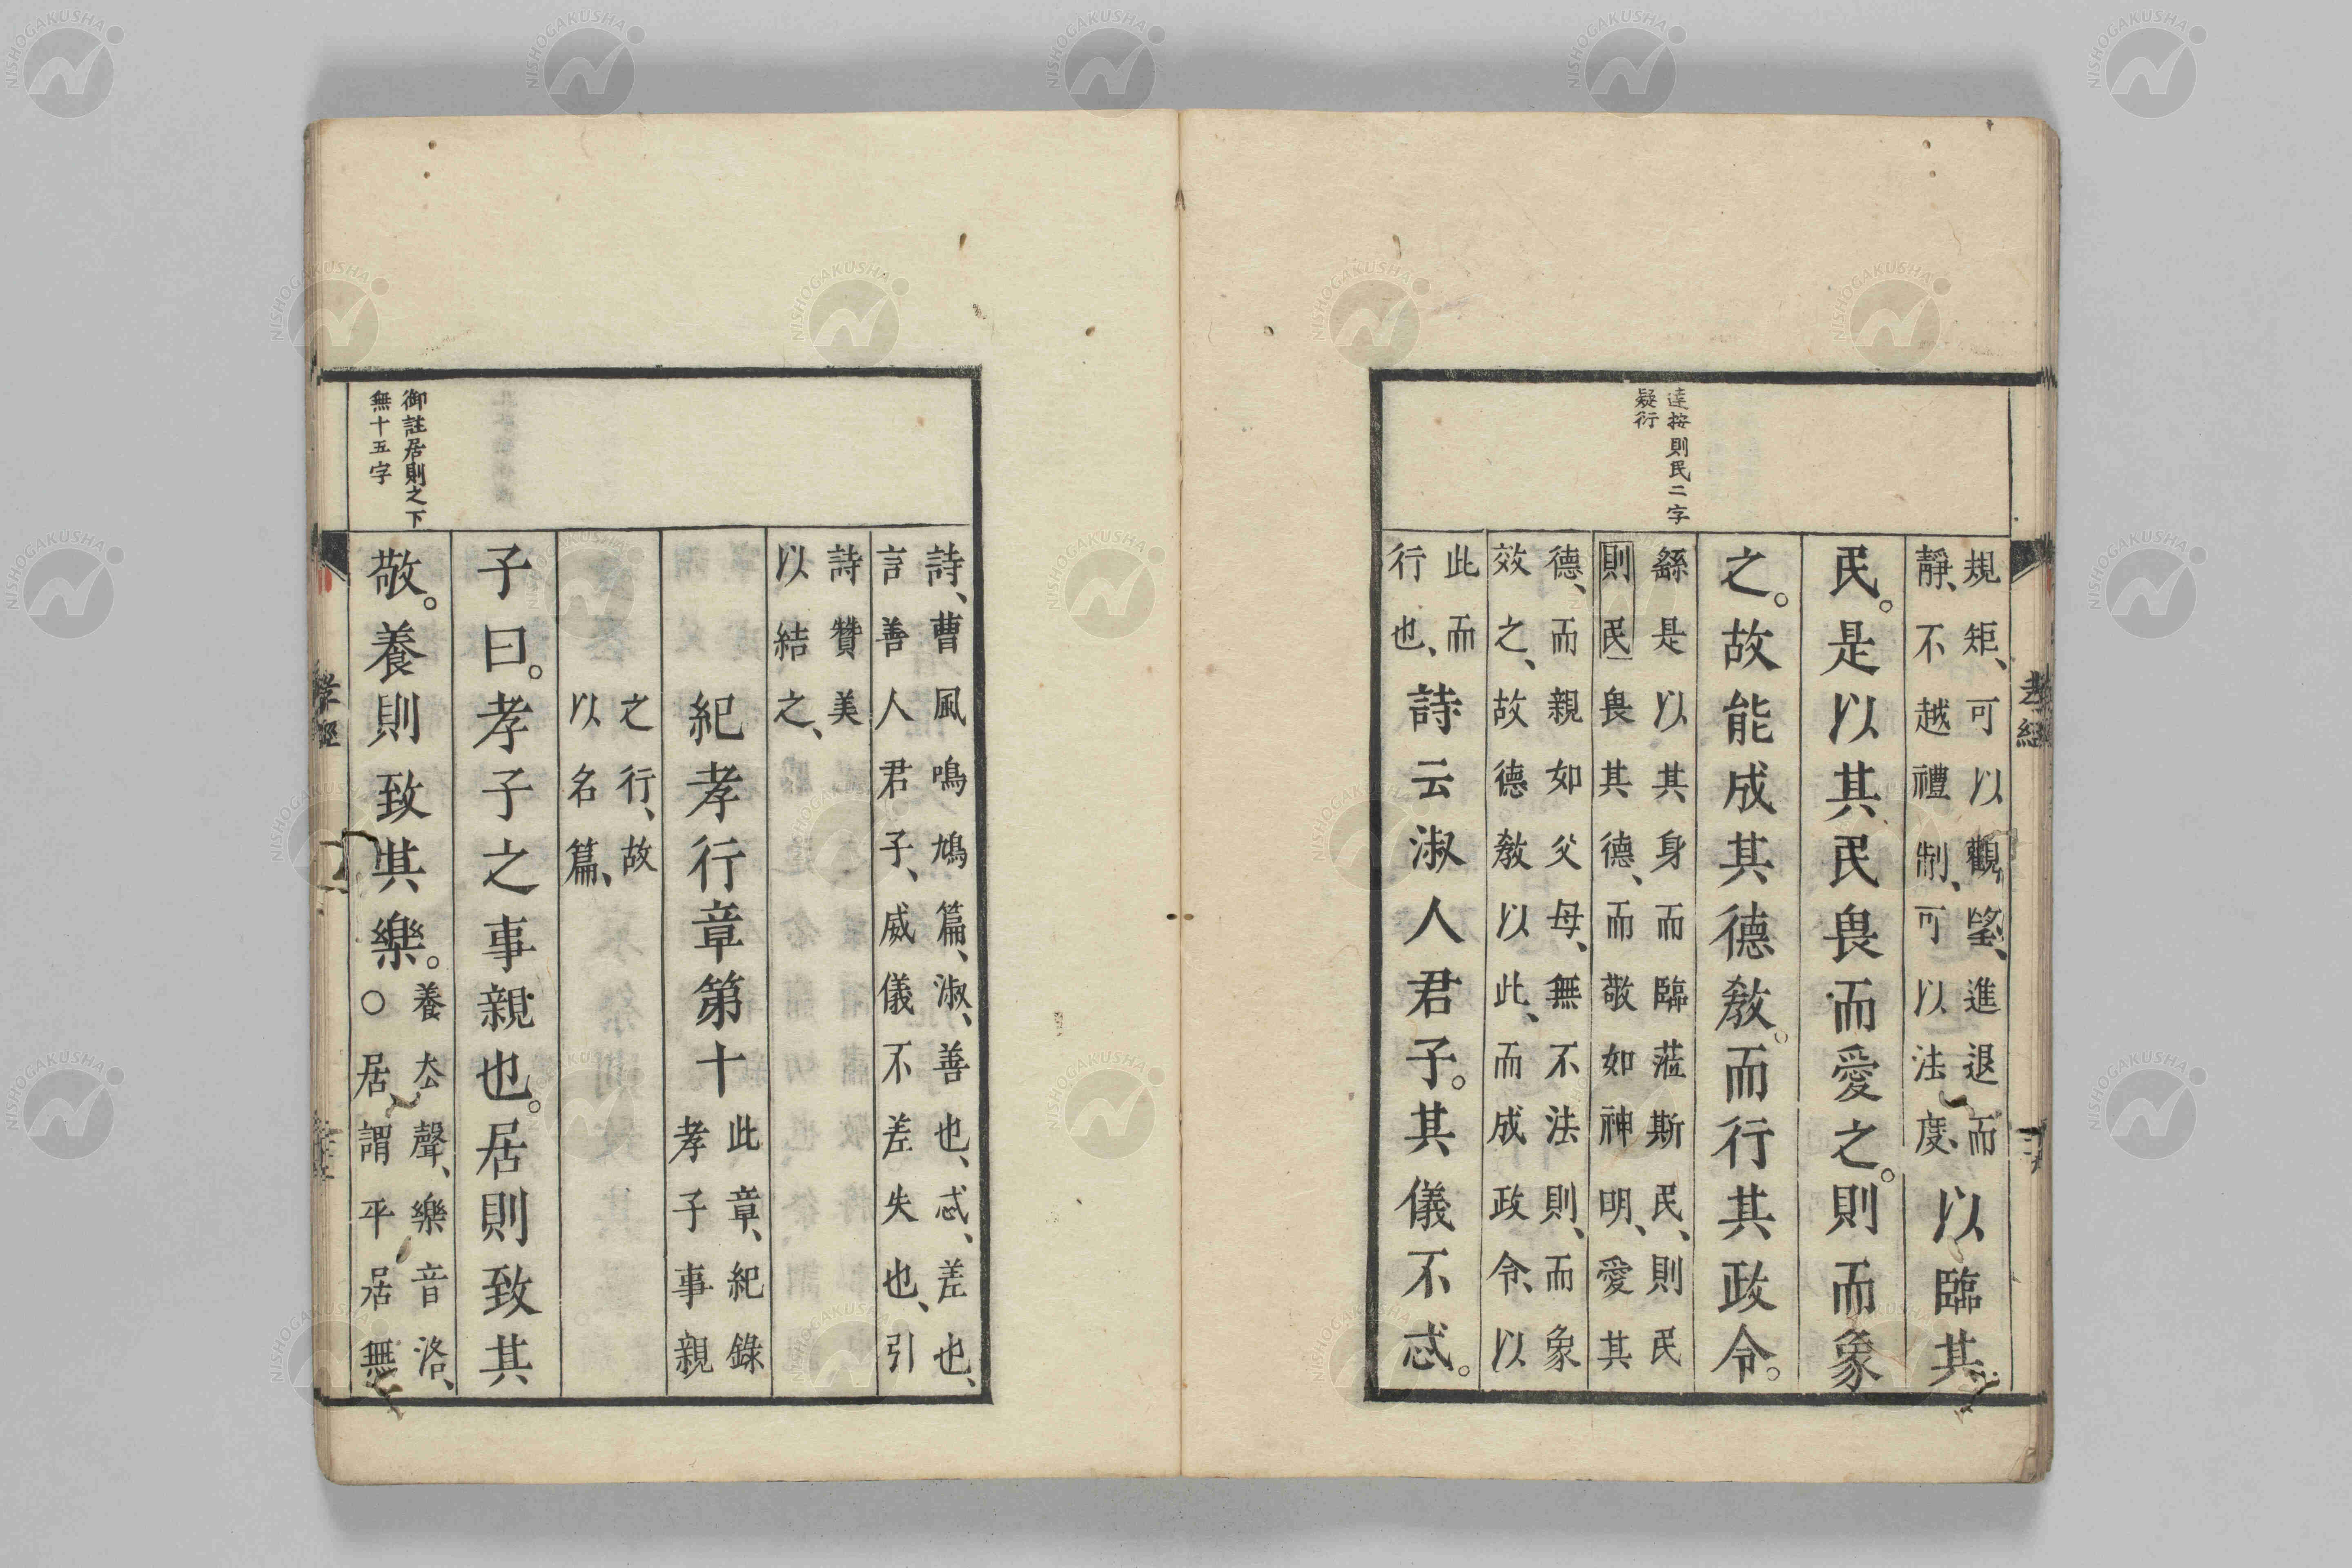 達按則民二字
疑衍
規矩、可以觀望、進退而
靜、不越禮制、可以法度、
以臨其
民。是以其民畏而愛之。則而象
之。故能成其德敎。而行其政令。
繇是以其身而臨蒞斯民、則民
則民畏其德、而敬如神明、愛其
德、而親如父母、無不法則、而象
效之、故德敎以此、而成政令、以
此而
行也、
詩云淑人君子。其儀不忒。
孝經
詩、曹風鳴鳩篇、淑、善也、忒、差也、
言善人君子、威儀不差失也、引
詩贊美
以結之、
紀孝行章第十
此章、紀錄
孝子事親
之行、故
以名篇、
子曰。孝子之事親也。居則致其
御註居則之下
無十五字
敬。養則致其樂。
養去聲、樂音洛、
○居謂平居無
孝經
NISHOGAKUSHA